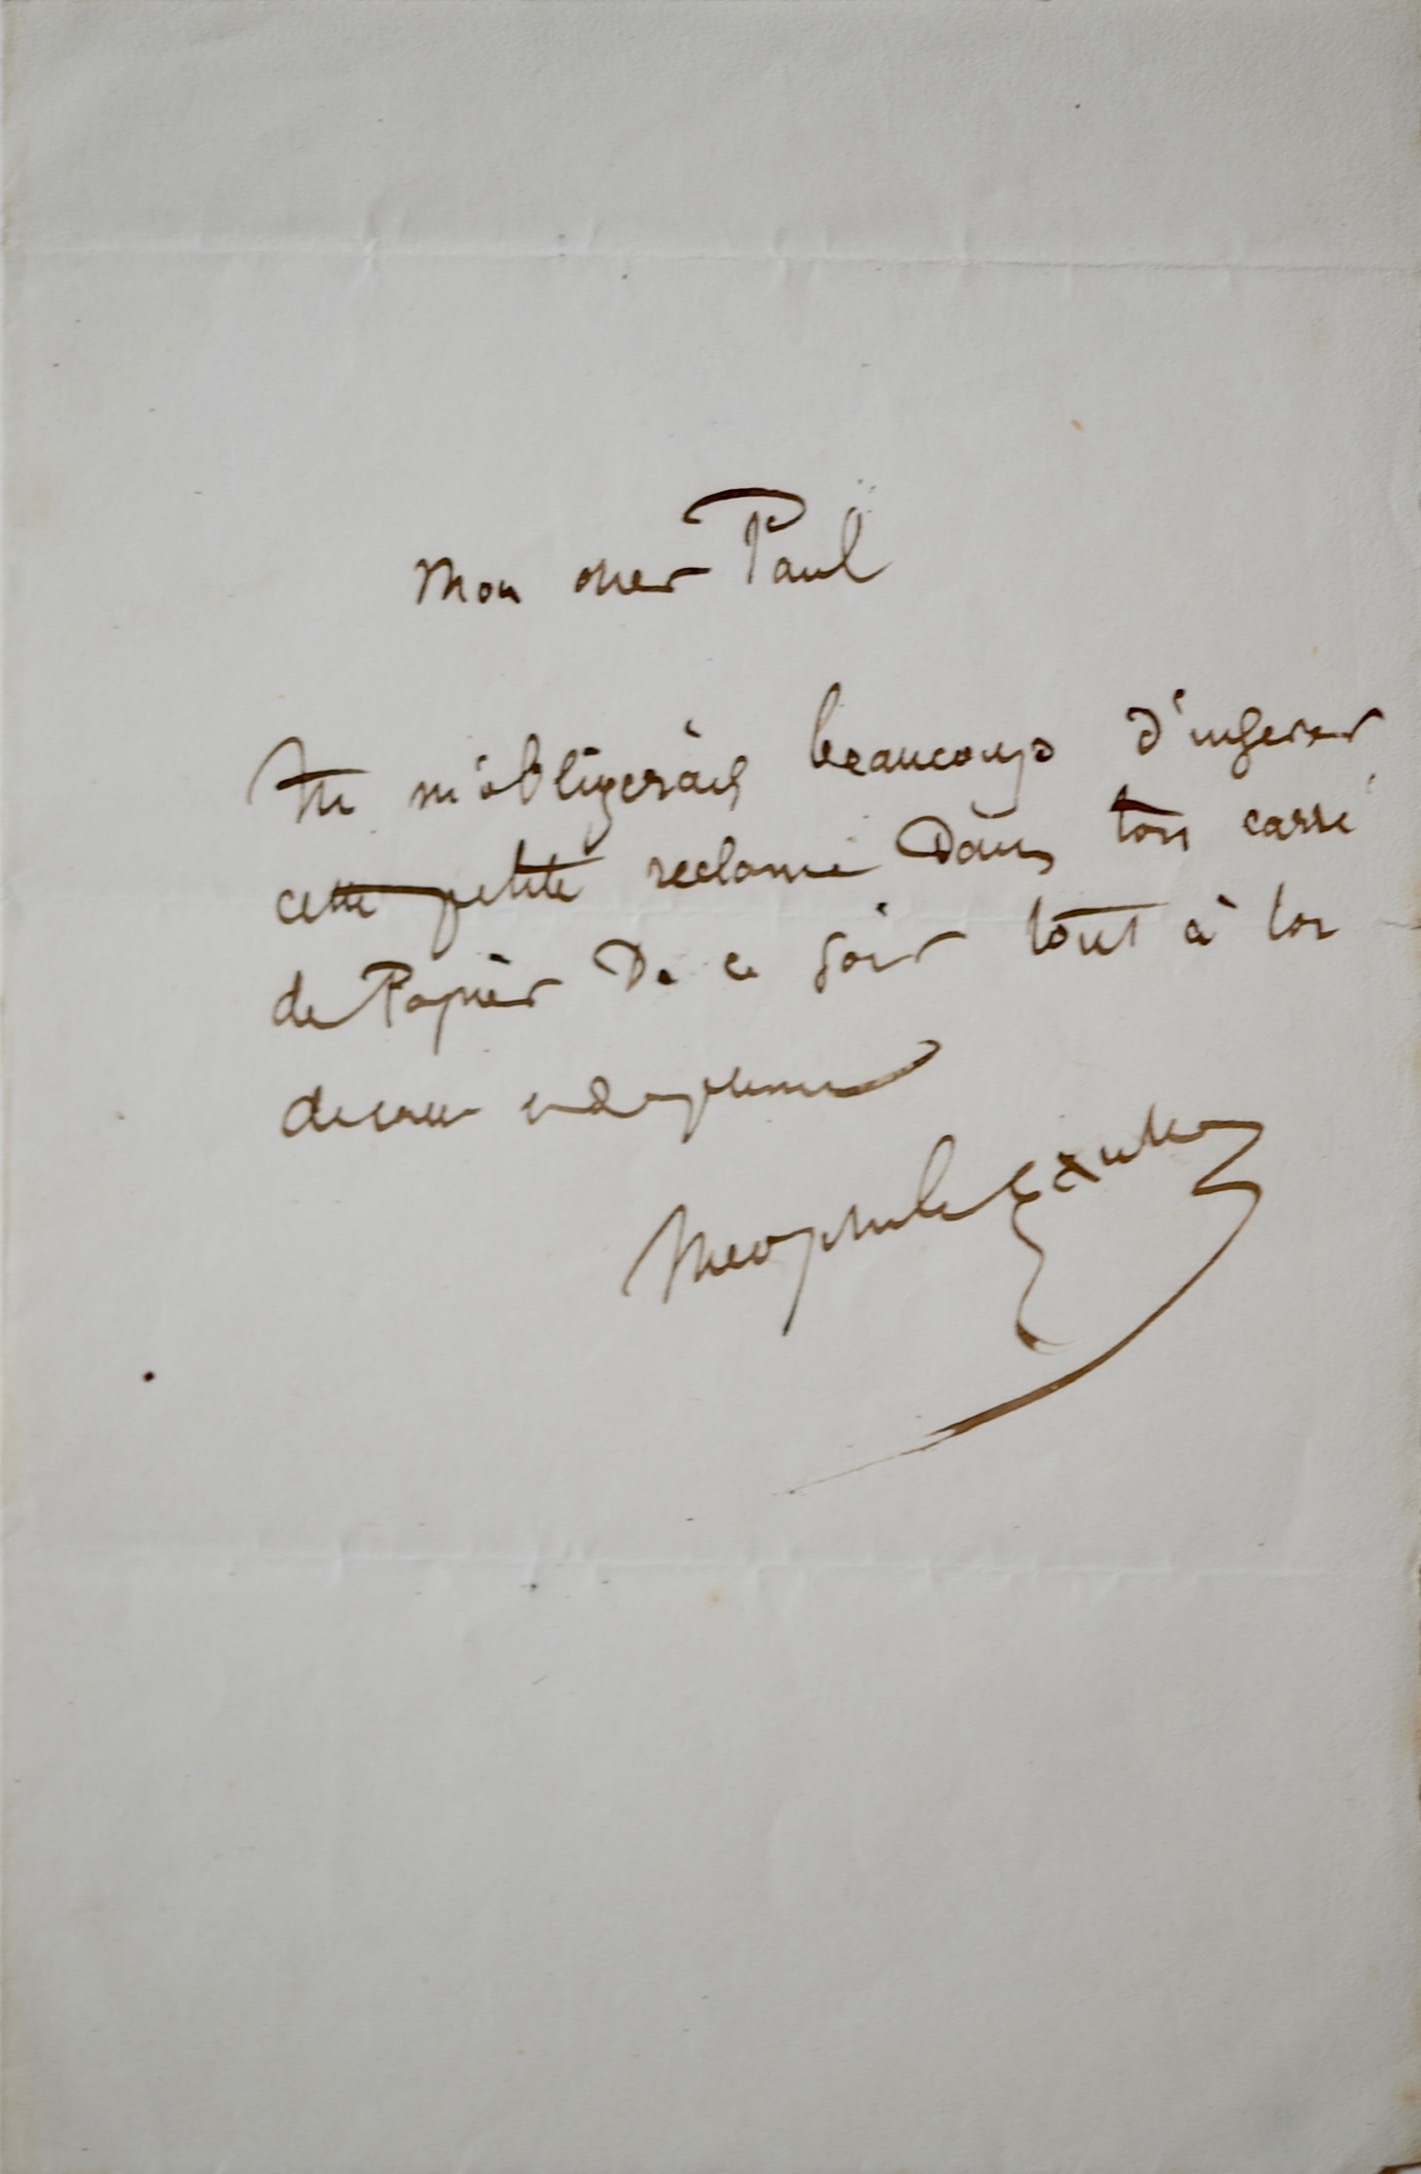 Mon cher Paul
Tu m'obligerais beaucoup d'inserer
cette petite reclame Dans ton carré
de Papier De ce soir tout à toi
de cœur et de plume
Theophile Gautier